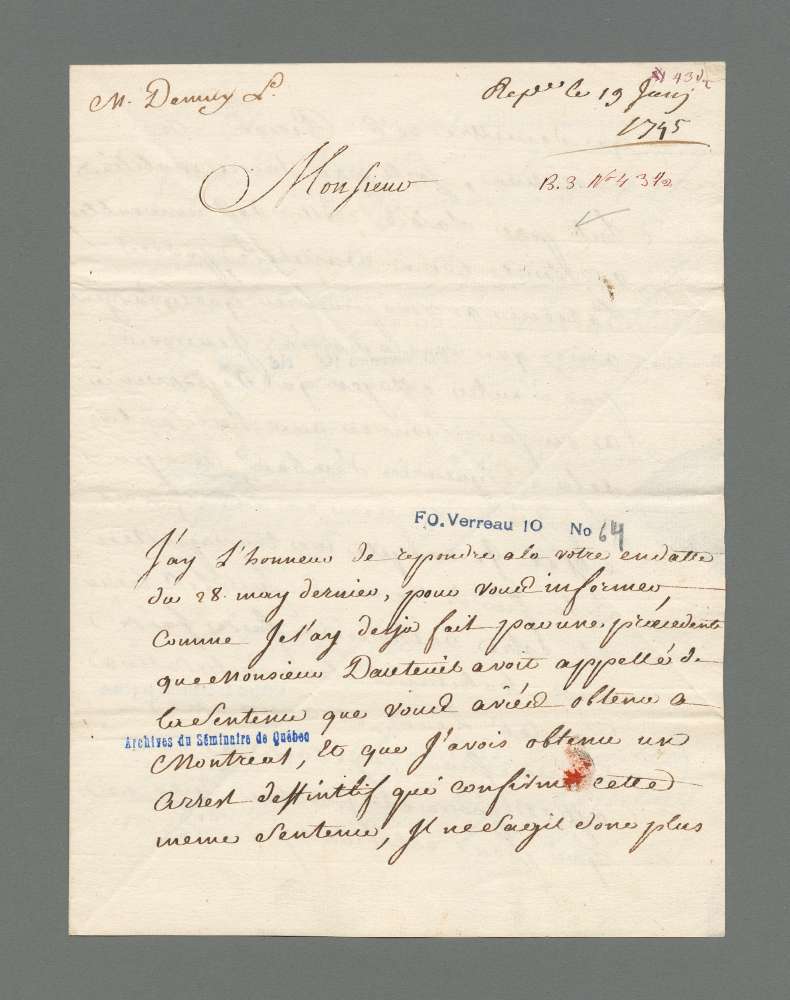 M. Demuy L.
Repdue le 19 Juin
1745
Monsieur
B. 3. No 4 3 1/2
FO. Verreau 10 No 64
J'ay L'honneur de repondre a la votre en datte
du 28. may dernier, pour vous informer,
Comme Je l'ay deja fait par une précédente
que Monsieur Dauteuil avoit appellé de
la Sentence que vous aviés obtenue a
Archives du Séminaire de Québec
Montreal, Et que J'avois obtenu un
Arrest deffinitif qui confirme cette
meme Sentence, Il ne S'agit donc plus